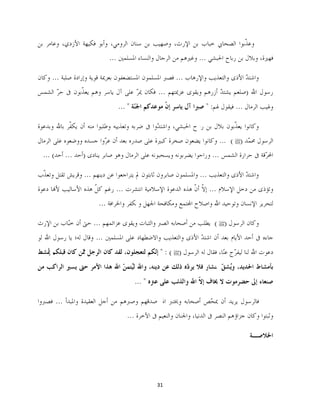 وعذّبوا الصحابي خباب بن الإرث، وصهيب بن سنان الرومي، وأبو فكيهة الأزدي، وعامر بن
فهيرة، وبلال بن رباح الحبشي ... وغيرهم من الرجال والنساء المسلمين ...
واشتدّ الأذى والتعذيب والإرهاب ... فصبر المسلمون المستضعفون بعزيمة قوية وإرادة صلبة ... وكان
رسول الله (صلعم) يشدّ أزرهم ويقوى عزيمتهم ... فكان يمرّ على آل ياسر وهم يعذّبون في حرّ الشمس
ولهيب الرمال ... فيقول لهم: " صبرا آل ياسر إنّ موعدكم الجنّة " ...
وكانوا يعذّبون بلال بن ر ح الحبشي، واشتدّوا في ضربه وتعذيبه وطلبوا منه أن يكفّر بالله وبدعوة
الرسول محمّد ( ) ... وكانوا يضعون صخرة كبيرة على صدره بعد أن عرّوا جسده ووضعوه على الرمال
المحرّقة في حرارة الشمس ... وراحوا يضربونه ويسحبونه على الرمال وهو صابر ينادى (أحد ... أحد) ...
واشتدّ الأذى والتعذيب ... والمسلمون صابرون ثابتون لم يتراجعوا عن دينهم ... وقريش تقتل وتعذّب
وتؤذى من دخل الإسلام ... إلاّ أنّ هذه الدعوة الإسلامية انتشرت ... رغم كلّ هذه الأساليب لأنها دعوة
لتحرير الإنسان وتوحيد الله وإصلاح المجتمع ومكافحة الجهل و بكفر والخرافة ...
وكان الرسول ( ) يطلب من أصحابه الصبر والثبات ويقوى عزائمهم ... حتى أن خبّاب بن الإرث
جاءه في أحد الأيام بعد أن اشتدّ الأذى والتعذيب والاضطهاد على المسلمين ... وقال له: يا رسول الله لو
دعوت الله لنا ليفرّج عنّا، فقال له الرسول ( ) : " إنّكم لتعجلون، لقد كان الرجل ممّن كان قبلكم يُمشط
بأمشاط الحديد، ويُشقّ بالمنشار فلا يردّه ذلك عن دينه، والله ليُتمنّ الله هذا الأمر حتى يسير الراكب من
صنعاء إلى حضرموت لا يخاف إلاّ الله والذئب على غنمه " ...
فالرسول يريد أن يمحّص أصحابه ويختبر صدقهم وصبرهم من أجل العقيدة والمبدأ ... فصبروا
وثبتوا وكان جزاؤهم النصر في الدنيا، والجنان والنعيم في الآخرة ...
الخلاصــة
31